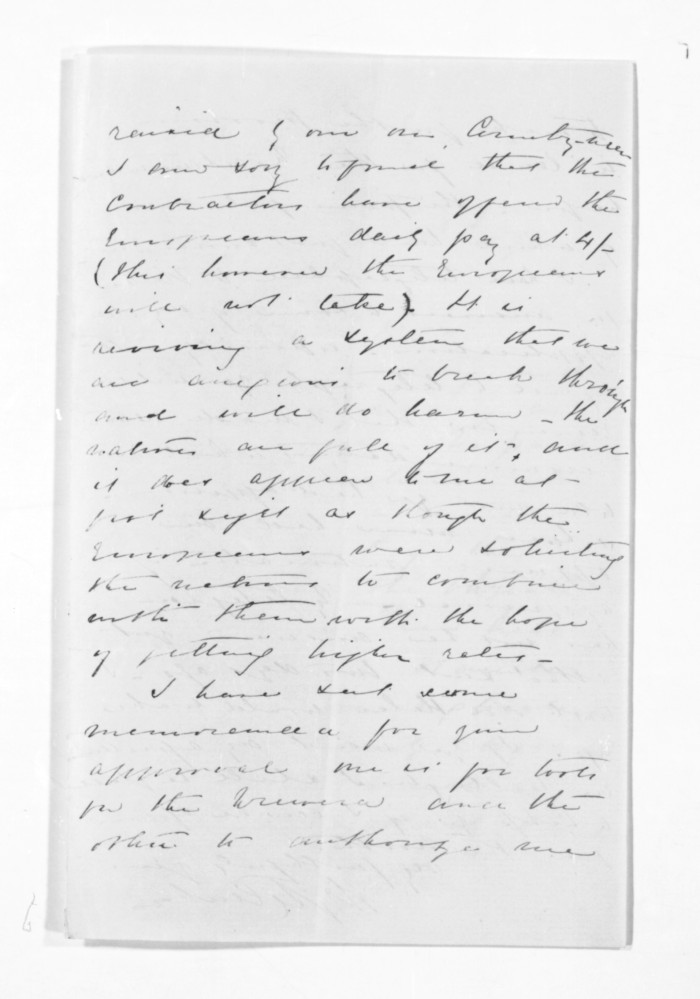 raised by our own Countrymen
I am sorry to find that the
Contractors have offered the
Europeans daily pay at 4/-
(this however the Europeans
will not take). It is
reviving a system that we
are anxious to break through
and will do harm - the
natives are full of it, and
it does appear to me at
first sight as though the
Europeans were soliciting
the natives to combine
with them with the hope
of getting higher rates -
I have sent some
memoranda for your
approval one is for tools
for the Wairoa and the
other to authorize me